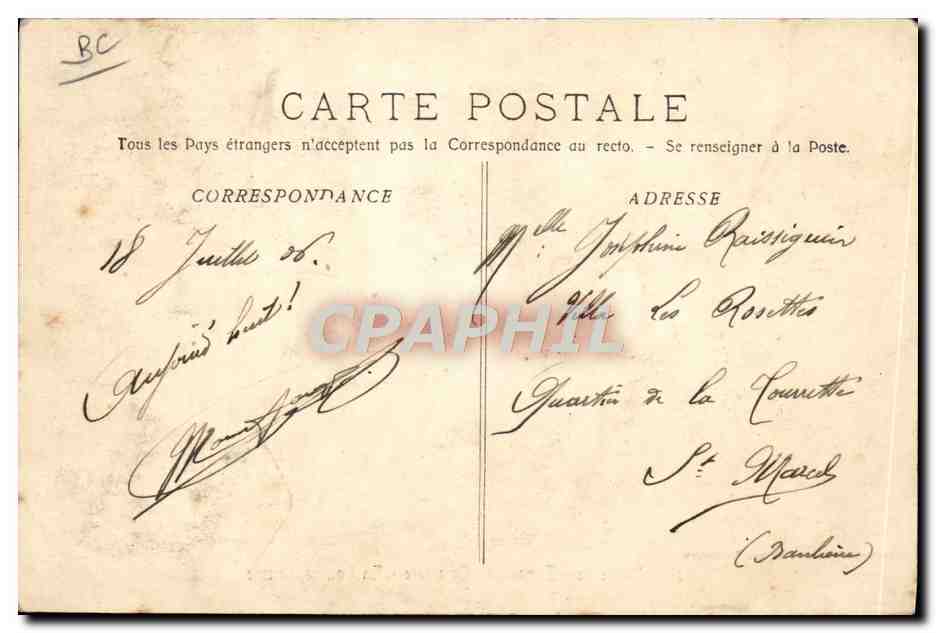 BC
CARTE POSTALE
Tous les Pays étrangers n'acceptent pas la Correspondance au recto. - Se renseigner à la Poste.
CORRESPONDANCE
18 Juillet 06.
Aujourd'huit!
ADRESSE
Melle Joséphine Raissiguier
Villa Les Rosettes
Quartier de la Tourrette
St Marcel
(Banlieue)
CPAPHIL